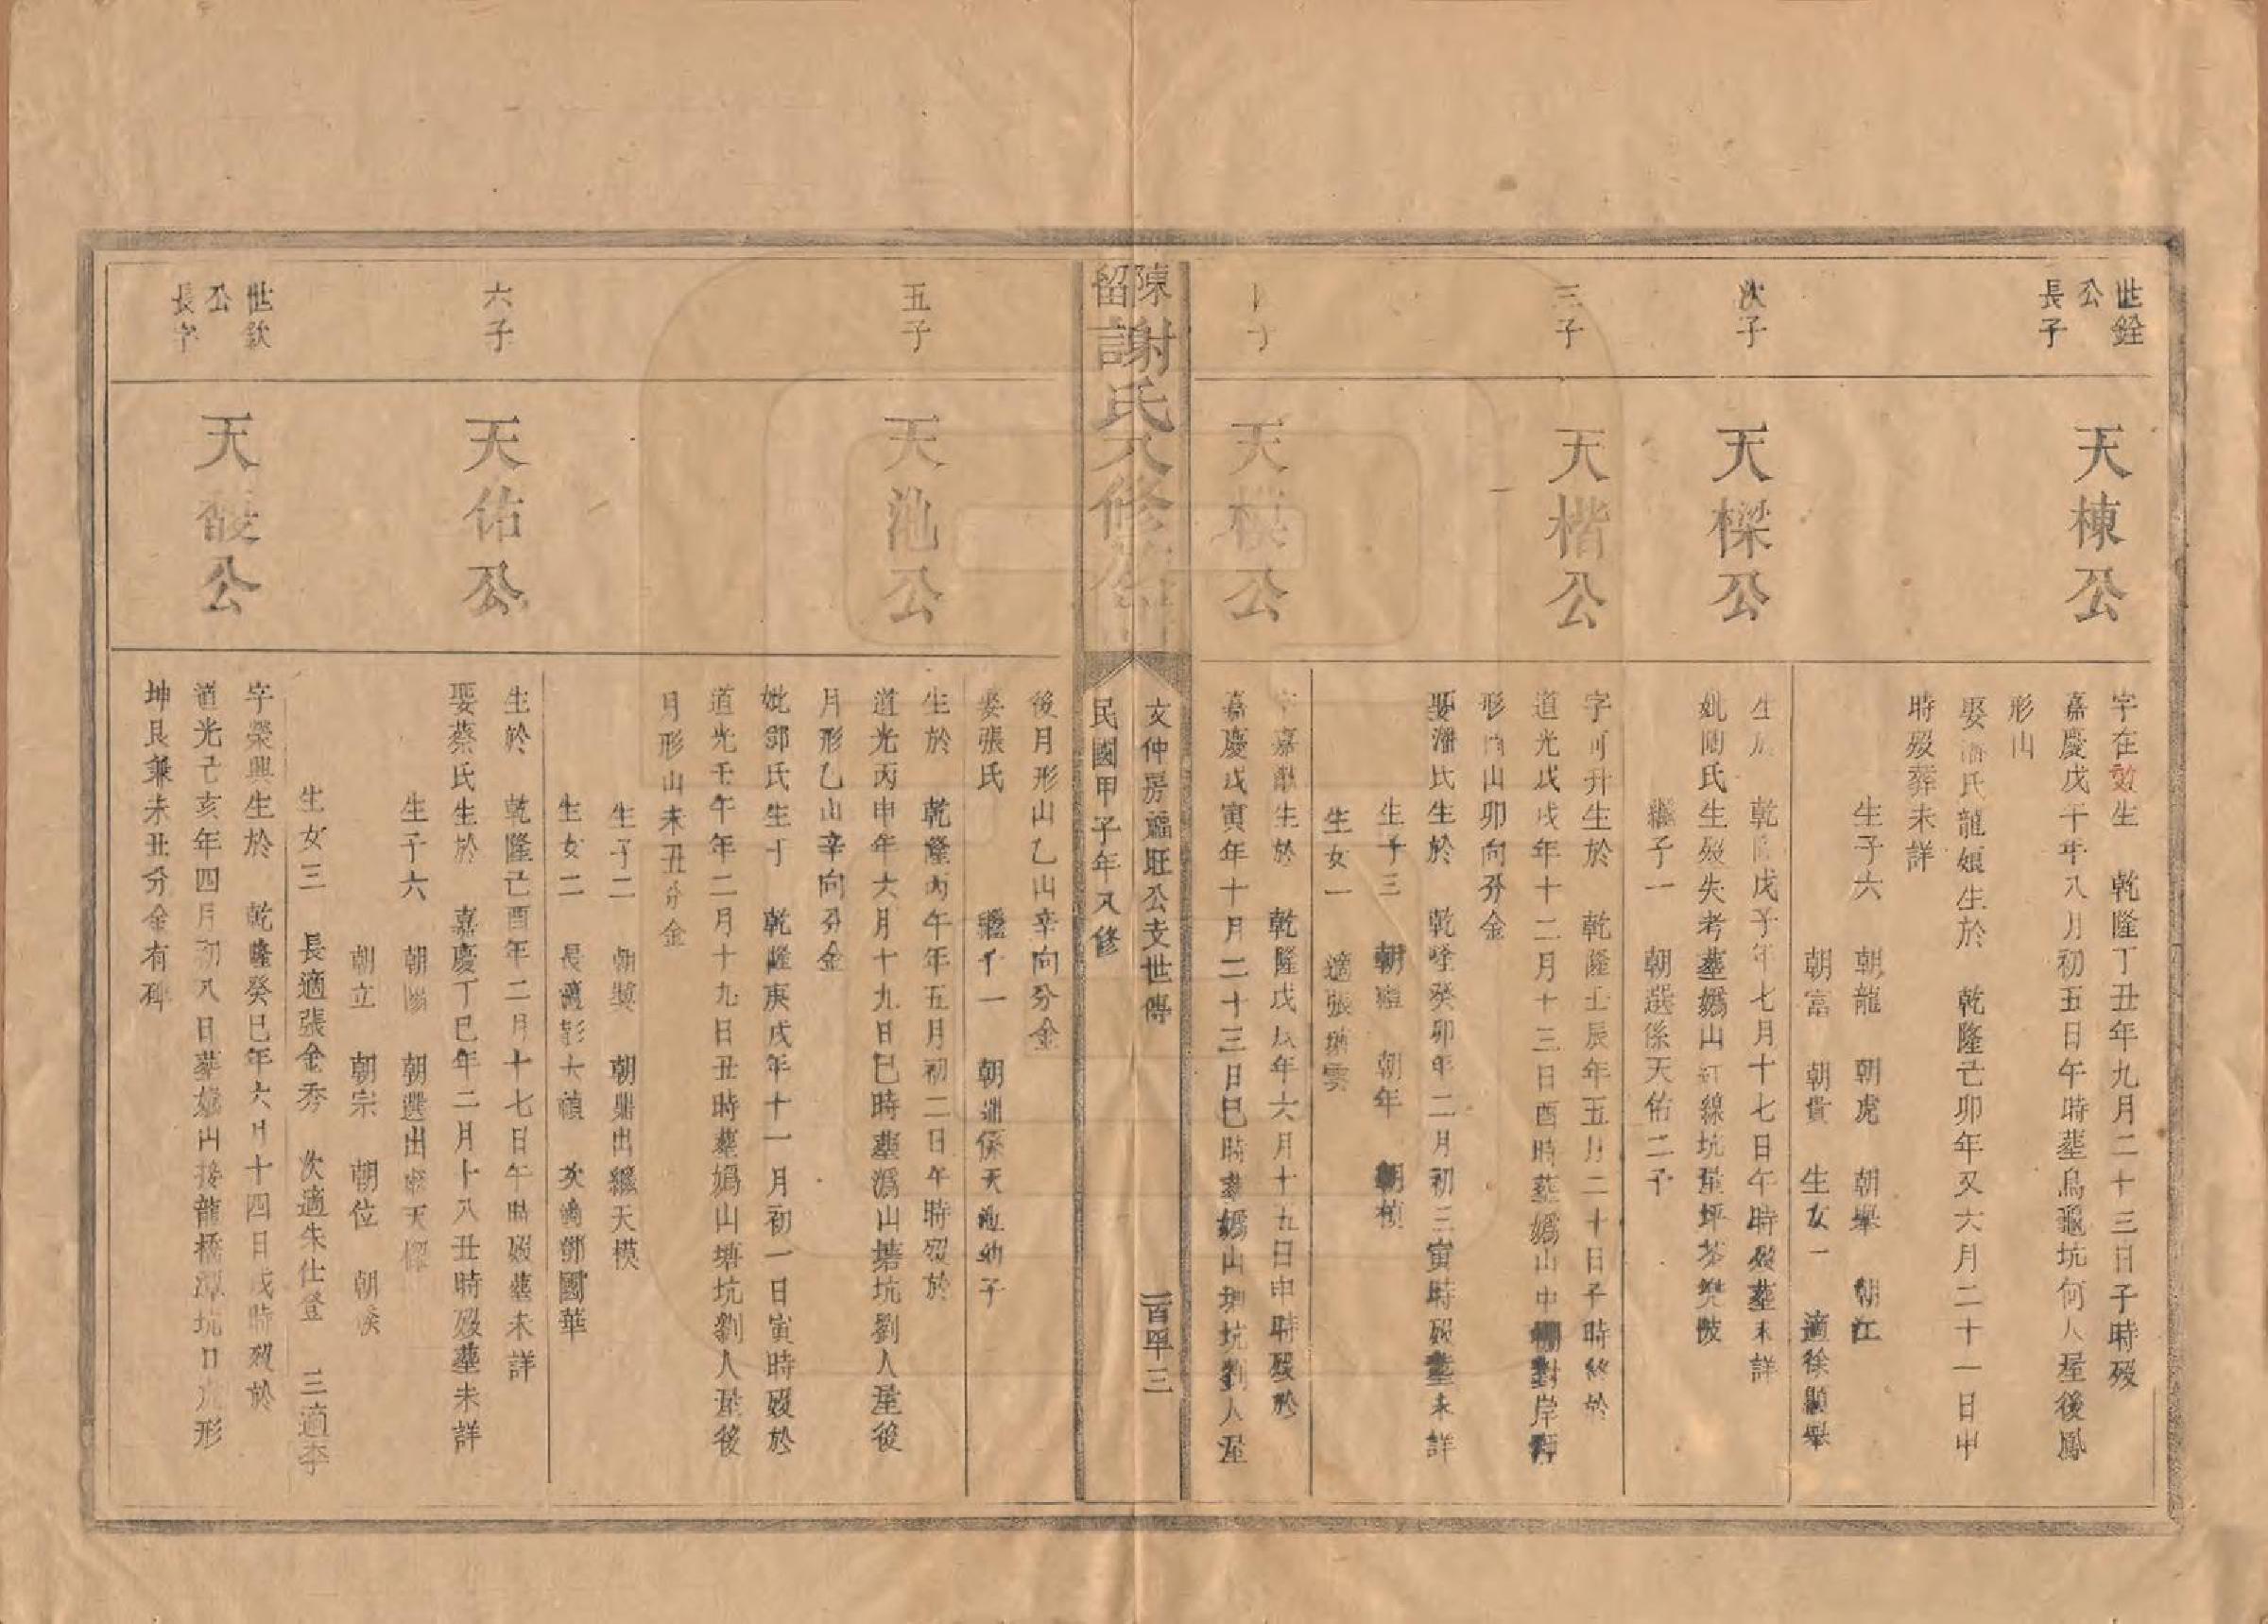 世銓
公
長子
天棟公
字在效生 乾隆丁丑年九月二十三日子時歿
嘉慶戊午年八月初五日午時塟烏龜坑何人屋後鳳
形山
娶潘氏龍娘生於 乾隆己卯年又六月二十一日申
時歿葬未詳
生子六 朝龍 朝虎 朝舉 朝江
朝富 朝貴 生女一 適徐顯舉
次子
天樑公
生於 乾隆戊子年七月十七日午時歿塟未詳
妣陶氏生歿失考塟嬀山紅線坑屋坪
繼子一 朝選係天佑二子
三子
天楷公
字可升生於 乾隆壬辰年五月二十日子時終於
道光戊戌年十二月十三日酉時塟嬀山中棚對岸
形酉山卯向分金
娶潘氏生於 乾隆癸卯年二月初三寅時歿塟未詳
生子三 朝 朝年 朝楨
生女一 適張雲
子
天模公
字嘉猷生於 乾隆戊辰年六月十九日申時歿於
嘉慶戊寅年十月二十三日巳時塟嬀山塘坑劉人屋
陳留謝氏八修
文仲房福旺公支世傳
一百卌三
民國甲子年八修
後月形山乙山辛向分金
娶張氏 繼子一 朝鼎係天池幼子
五子
天池公
生於 乾隆丙午年五月初二日午時歿於
道光丙申年六月十九日巳時塟嬀山塘坑劉人屋後
月形乙山辛向分金
妣鄧氏生于 乾隆庚戌年十一月初一日寅時歿於
道光壬午年二月十九日丑時塟嬀山塘坑劉人屋後
月形山未丑分金
生子二 朝獎 朝鼎出繼天模
生女二 長適彭大禎 次適鄧國華
六子
天佑公
生於 乾隆己酉年二月十七日午時歿塟未詳
娶蔡氏生於 嘉慶丁巳年二月十八丑時歿塟未詳
生子六 朝陽 朝選出繼天樑
朝立 朝宗 朝位 朝候
生女三 長適張金秀 次適朱仕登 三適李
世欽
公
長子
天公
字榮興生於 乾隆癸巳年六月十四日戌時歿於
道光己亥年四月初八日塟嬀山接龍橋潭坑口形
坤艮兼未丑分金有碑